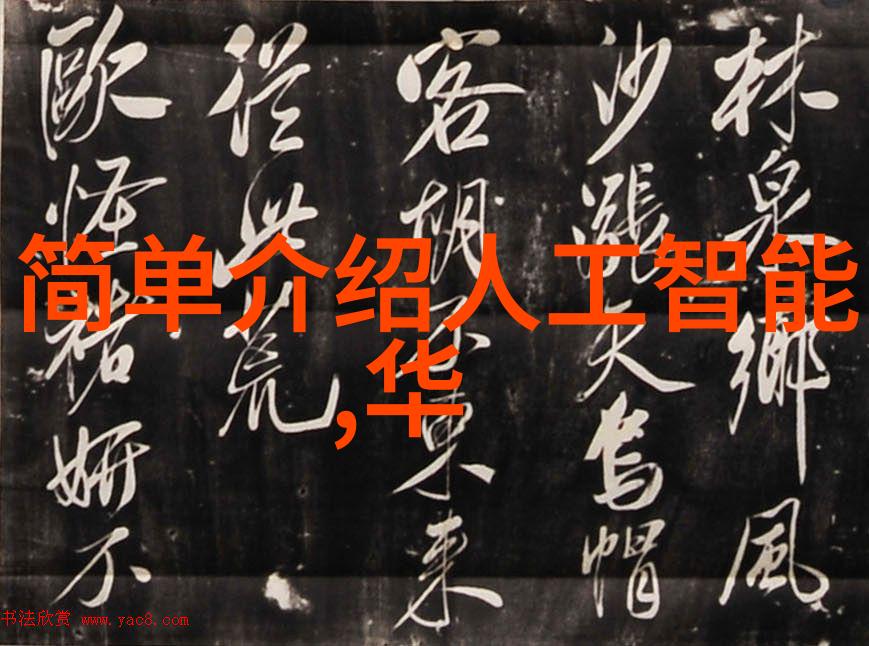 简单介绍人工智能
,华
林泉鄉風
沙漲天烏帽
客胡東來
從此荒
歐怪褚妍不
书法欣赏 www.yac8.com